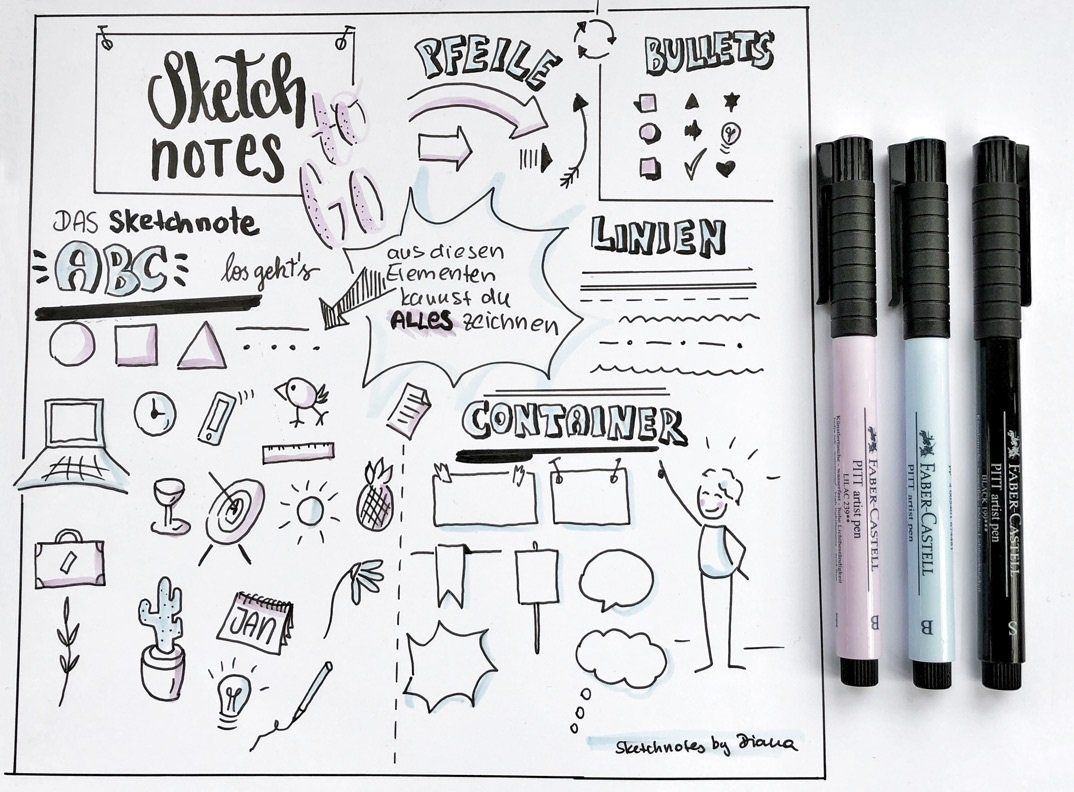 Sketch
to
NOTES
GO
PFEILE
BULLETS
DAS Sketchnote
ABC
los geht's
aus diesen
Elementen
kannst du
ALLES zeichnen
LINIEN
CONTAINER
JAN
Sketchnotes by Diana
FABER-CASTELL
PITT artist pen
LILAC 239**
B
FABER-CASTELL
PITT artist pen
B
FABER-CASTELL
PITT artist pen
BLACK 199***
S